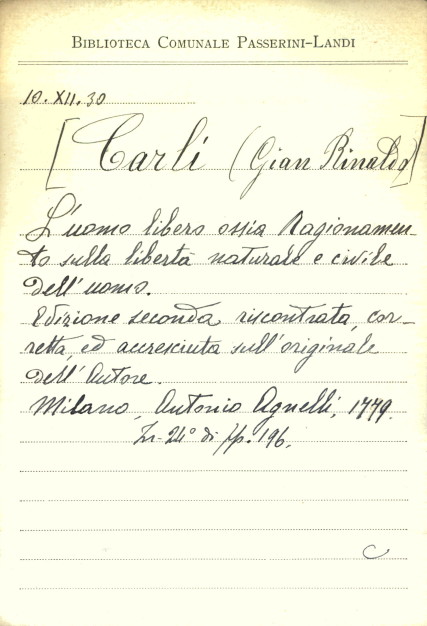 BIBLIOTECA COMUNALE PASSERINI-LANDI
10. XII. 30
[Carli (Gian Rinaldo)]
L'uomo libero ossia Ragionamen-
to sulla libertà naturale e civile
dell'uomo.
Edizione seconda riscontrata, cor-
retta, ed accresciuta sull'originale
dell'Autore.
Milano, Antonio Agnelli, 1779.
In-24° di pp. 196.
C